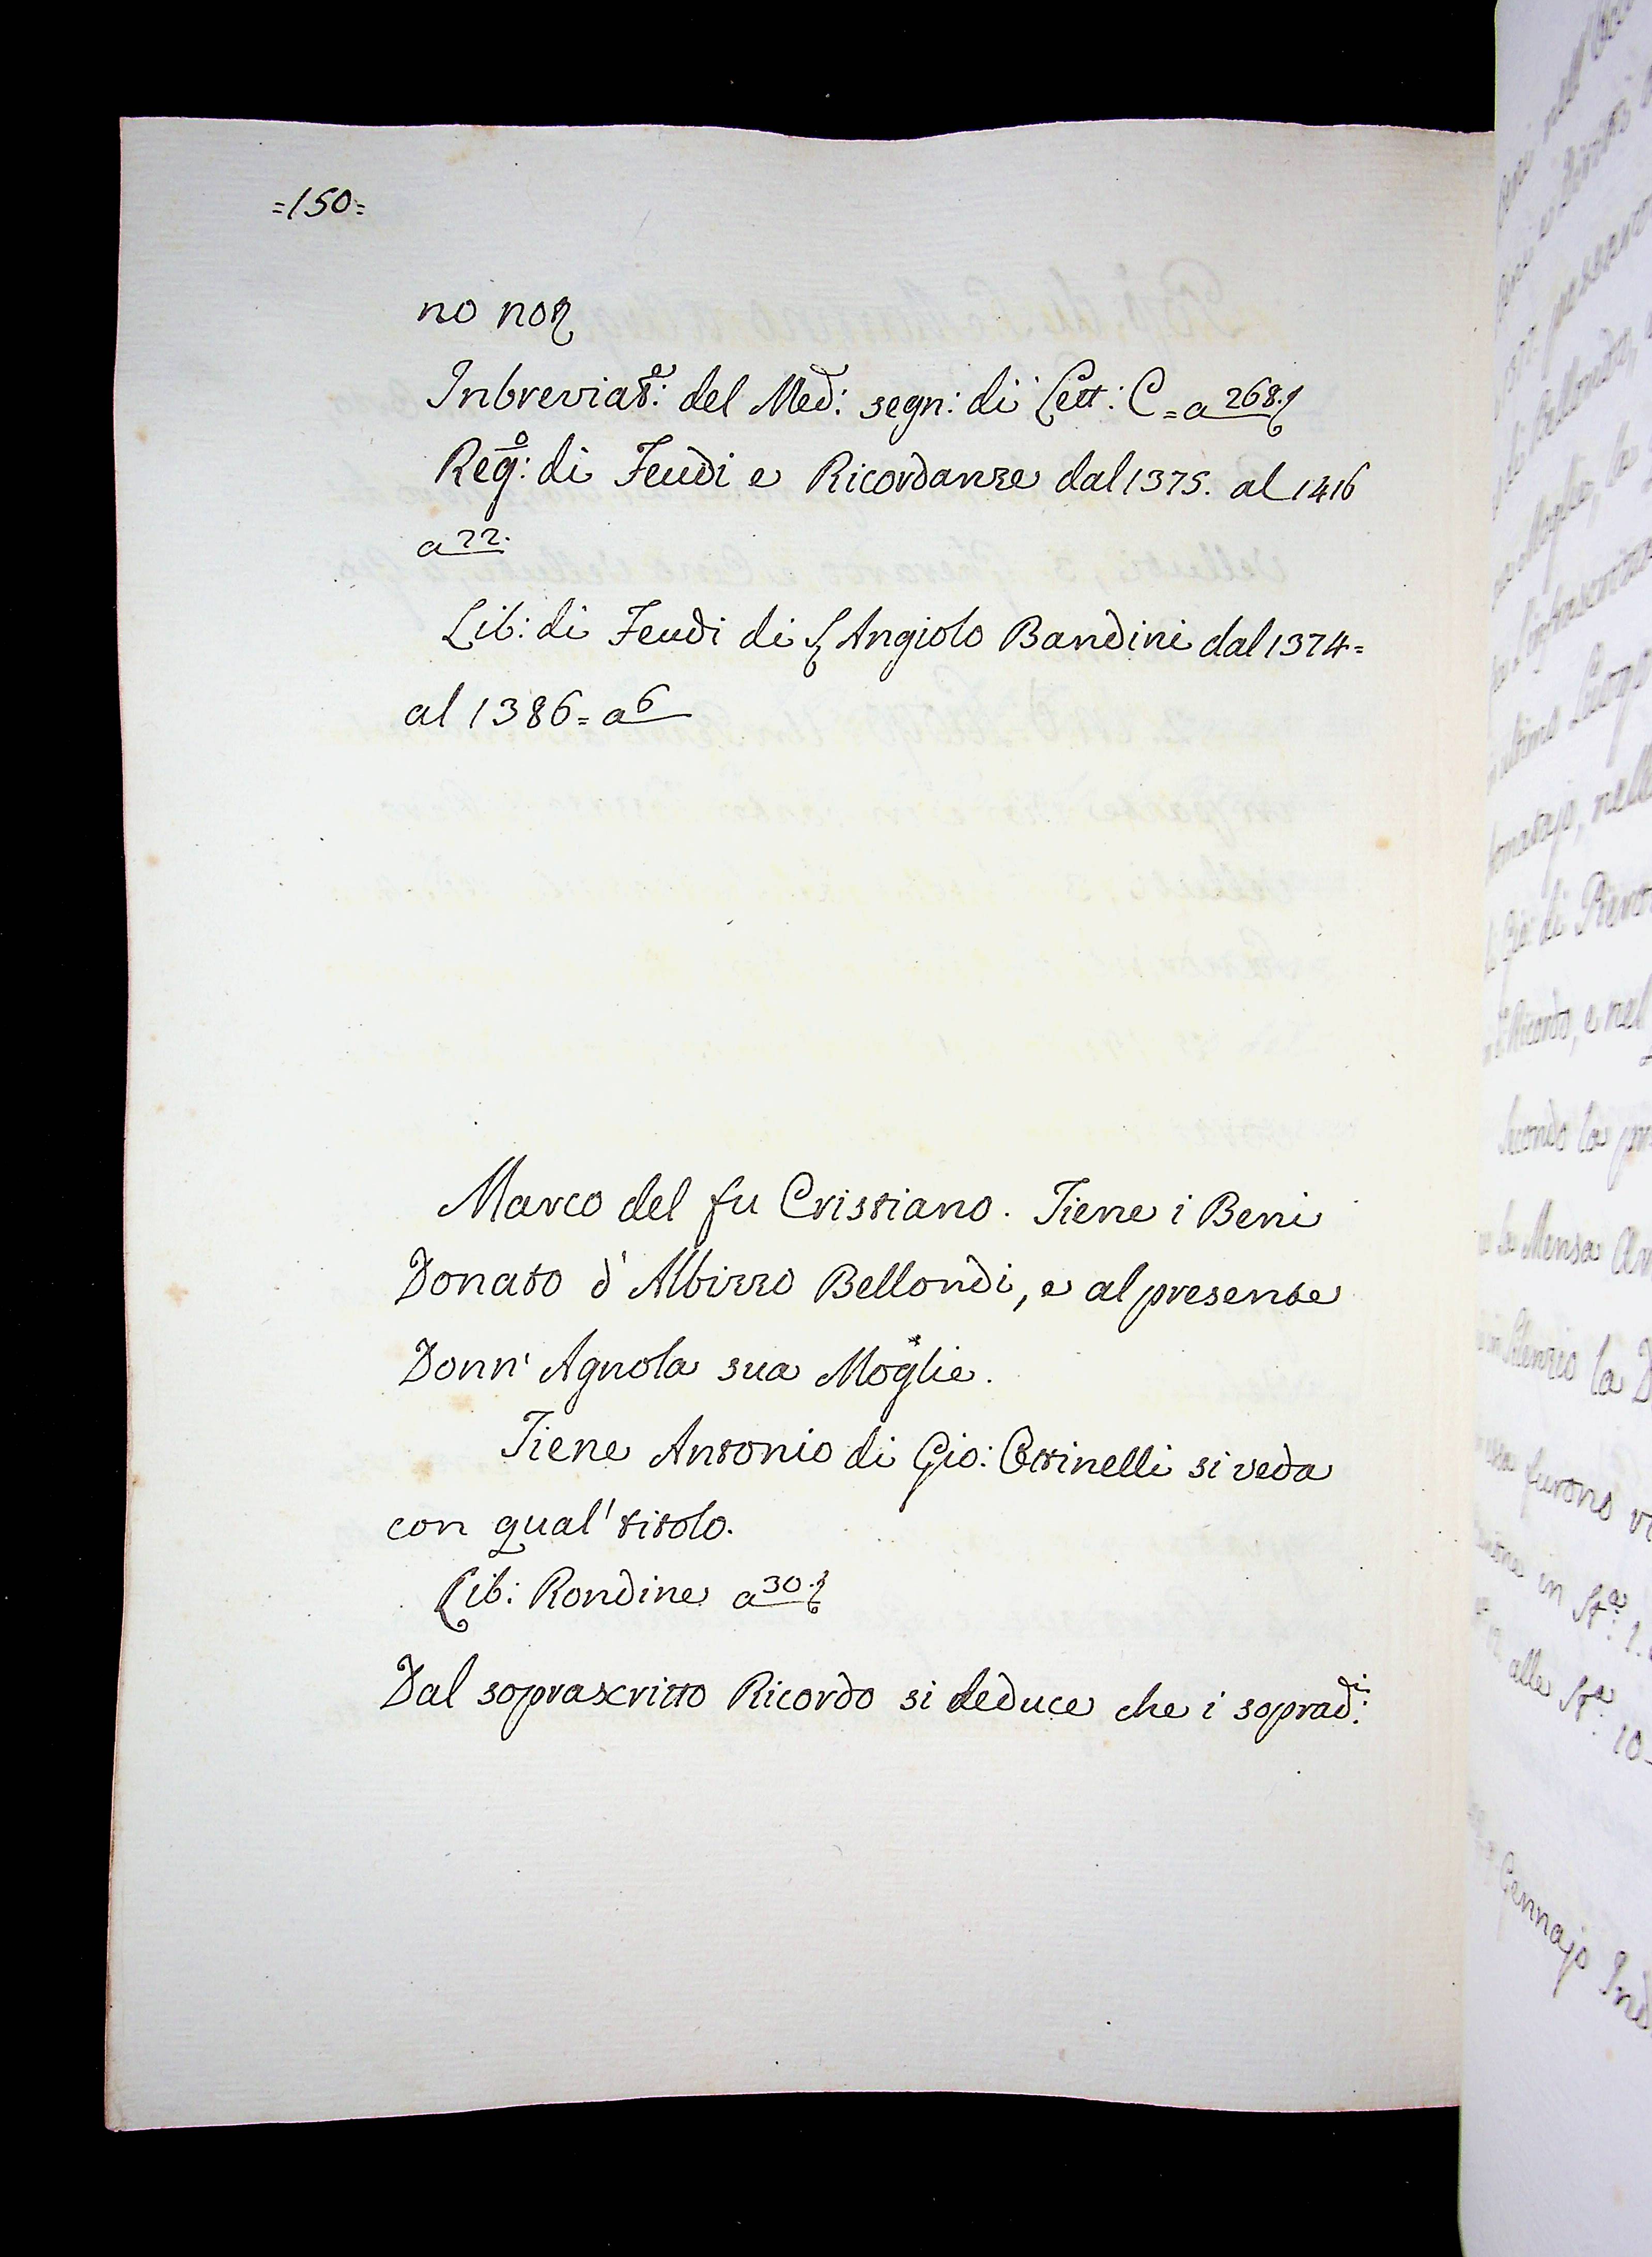 =150=
no non
Inbreviat:e del Med:o segn: di Lett: C = a 268.
Reg:o di Feudi e Ricordanze dal 1375. al 1416
a 22.
Lib: di Feudi di S Angiolo Bandini dal 1374=
al 1386= a 6
Marco del fu Cristiano. Tiene i Beni
Donato d'Albizzo Bellondi, e al presente
Donn' Agnola sua Moglie.
Tiene Antonio di Gio: Ottinelli si veda
con qual' titolo.
Lib: Rondine a 30.
Dal soprascritto Ricordo si deduce che i soprad:i